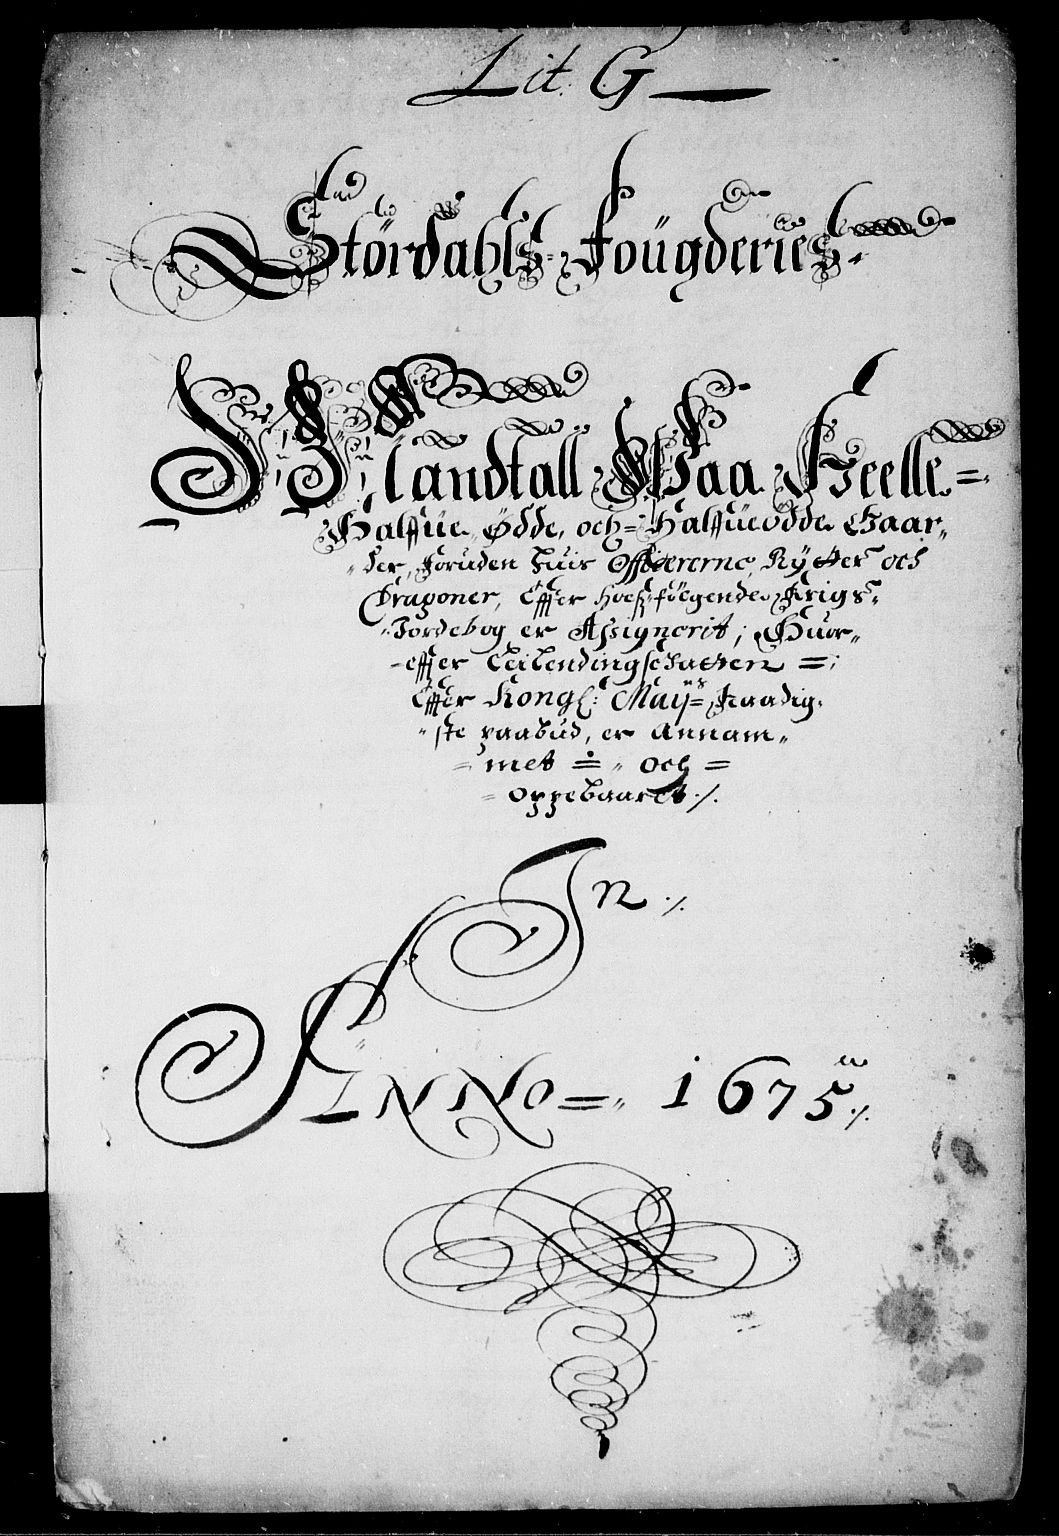 Lit. G
Stördahls Fougderies
Mandtall Paa Heelle=
Halffue Ødde, och= Halffueødde Gaar„
der, Foruden huis Officererne, Rytter och
Dragoner, Effter hoesföegende Krigs„
Jordebog er Assignerit; Huor„
effter Leilendingschatten =;
Effter Kongl: Maijts Naadig„
ste paabud, er Annam„
met = och =
oppebaaret ./.
In ./.
ANNO= 1675 ./.